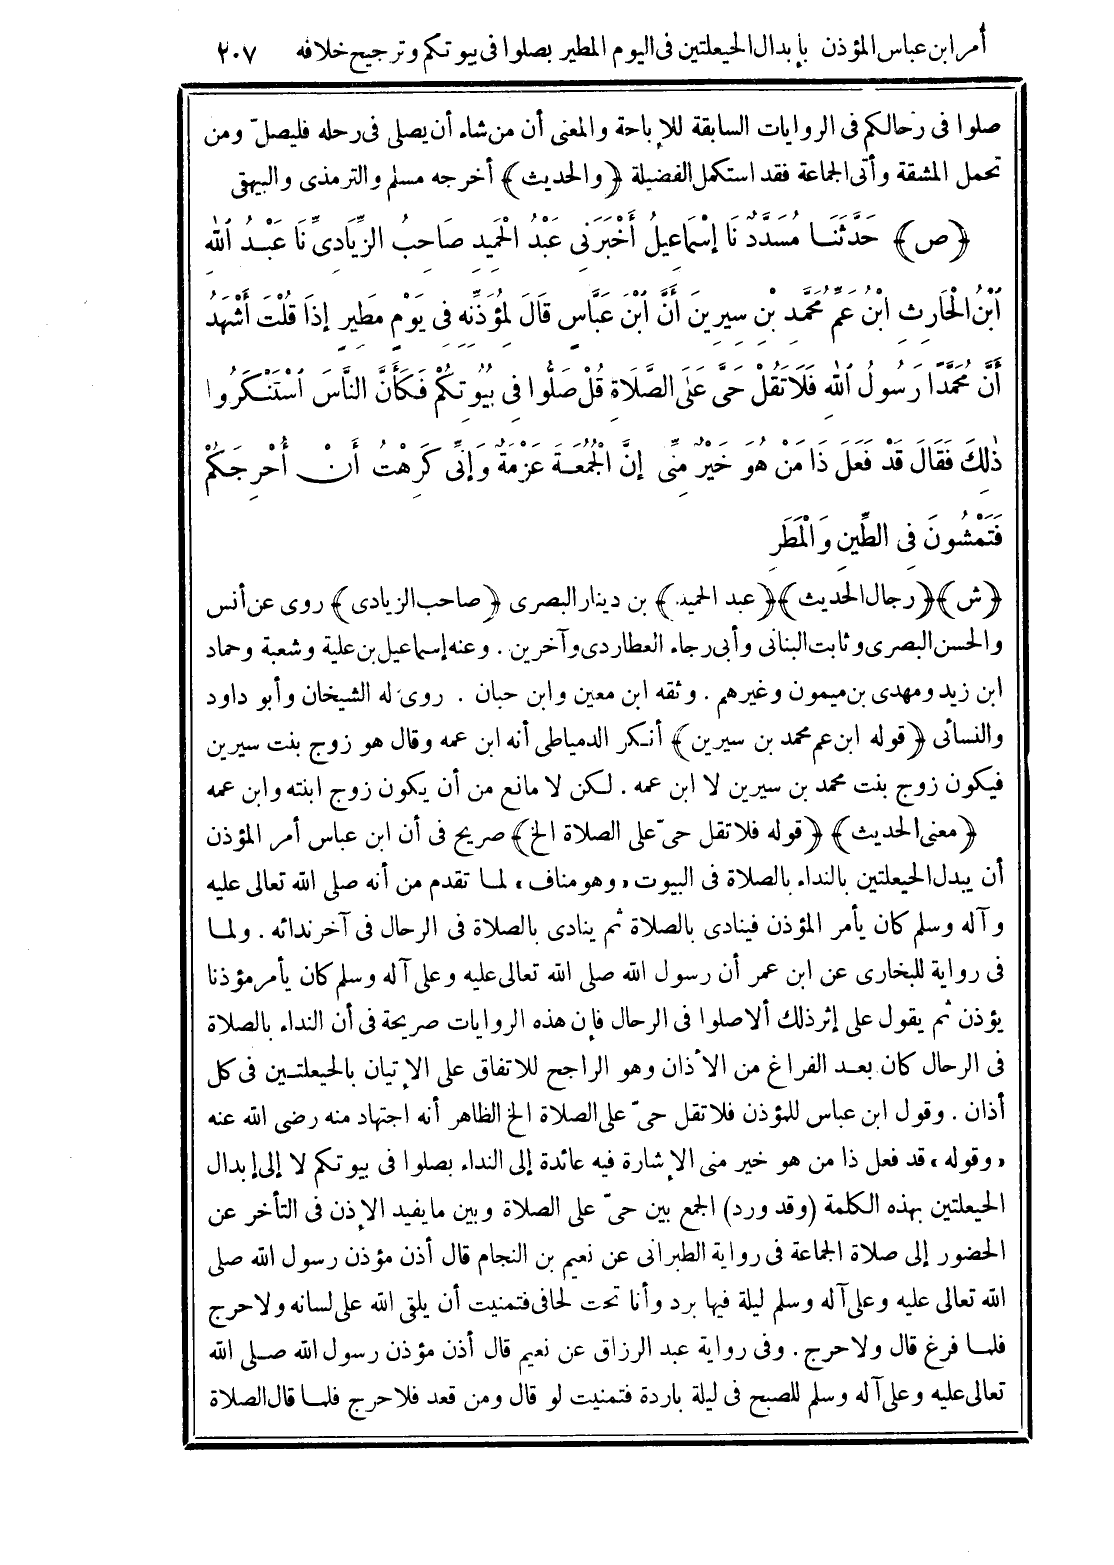 أمر ابن عباس المؤذن بإبدال الحيعلتين فى اليوم المطير بصلوا فى بيوتكم وترجيح خلافه ٢٠٧
صلوا فى رحالكم فى الروايات السابقة للإباحة والمعنى أن من شاء أن يصلى فى رحله فليصلّ ومن
تحمل المشقة وأتى الجماعة فقد استكمل الفضيلة ﴿والحديث﴾ أخرجه مسلم والترمذى والبيهقى
﴿ص﴾ حَدَّثَنَا مُسَدَّدٌ نَا إِسْمَاعِيلُ أَخْبَرَنِى عَبْدُ الْحَمِيدِ صَاحِبُ الزِّيَادِىِّ نَا عَبْدُ اللهِ
ابْنُ الْحَارِثِ ابْنُ عَمِّ مُحَمَّدِ بْنِ سِيرِينَ أَنَّ ابْنَ عَبَّاسٍ قَالَ لِمُؤَذِّنِهِ فِى يَوْمٍ مَطِيرٍ إِذَا قُلْتَ أَشْهَدُ
أَنَّ مُحَمَّدًا رَسُولُ اللهِ فَلَا تَقُلْ حَىَّ عَلَى الصَّلَاةِ قُلْ صَلُّوا فِى بُيُوتِكُمْ فَكَأَنَّ النَّاسَ اسْتَنْكَرُوا
ذٰلِكَ فَقَالَ قَدْ فَعَلَ ذَا مَنْ هُوَ خَيْرٌ مِنِّى إِنَّ الْجُمُعَةَ عَزْمَةٌ وَإِنِّى كَرِهْتُ أَنْ أُحْرِجَكُمْ
فَتَمْشُونَ فِى الطِّينِ وَالْمَطَرِ
﴿ش﴾ ﴿رجال الحديث﴾ ﴿عبد الحميد﴾ بن دينار البصرى ﴿صاحب الزيادى﴾ روى عن أنس
والحسن البصرى وثابت البنانى وأبى رجاء العطاردى وآخرين . وعنه إسماعيل بن علية وشعبة وحماد
ابن زيد ومهدى بن ميمون وغيرهم . وثقه ابن معين وابن حبان . روى له الشيخان وأبو داود
والنسائى ﴿قوله ابن عم محمد بن سيرين﴾ أنكر الدمياطى أنه ابن عمه وقال هو زوج بنت سيرين
فيكون زوج بنت محمد بن سيرين لا ابن عمه . لكن لا مانع من أن يكون زوج ابنته وابن عمه
﴿معنى الحديث﴾ ﴿قوله فلا تقل حىّ على الصلاة الخ﴾ صريح فى أن ابن عباس أمر المؤذن
أن يبدل الحيعلتين بالنداء بالصلاة فى البيوت «وهو مناف» لما تقدم من أنه صلى الله تعالى عليه
وآله وسلم كان يأمر المؤذن فينادى بالصلاة ثم ينادى بالصلاة فى الرحال فى آخر ندائه . ولما
فى رواية للبخارى عن ابن عمر أن رسول الله صلى الله تعالى عليه وعلى آله وسلم كان يأمر مؤذنا
يؤذن ثم يقول على إثر ذلك ألا صلوا فى الرحال فإن هذه الروايات صريحة فى أن النداء بالصلاة
فى الرحال كان بعد الفراغ من الأذان وهو الراجح للاتفاق على الإتيان بالحيعلتين فى كل
أذان . وقول ابن عباس للمؤذن فلا تقل حىّ على الصلاة الخ الظاهر أنه اجتهاد منه رضى الله عنه
«وقوله» قد فعل ذا من هو خير منى الإشارة فيه عائدة إلى النداء بصلوا فى بيوتكم لا إلى إبدال
الحيعلتين بهذه الكلمة (وقد ورد) الجمع بين حىّ على الصلاة وبين ما يفيد الإذن فى التأخر عن
الحضور إلى صلاة الجماعة فى رواية الطبرانى عن نعيم بن النحام قال أذن مؤذن رسول الله صلى
الله تعالى عليه وعلى آله وسلم ليلة فيها برد وأنا تحت لحافى فتمنيت أن يلقى الله على لسانه ولا حرج
فلما فرغ قال ولا حرج . وفى رواية عبد الرزاق عن نعيم قال أذن مؤذن رسول الله صلى الله
تعالى عليه وعلى آله وسلم للصبح فى ليلة باردة فتمنيت لو قال ومن قعد فلا حرج فلما قال الصلاة